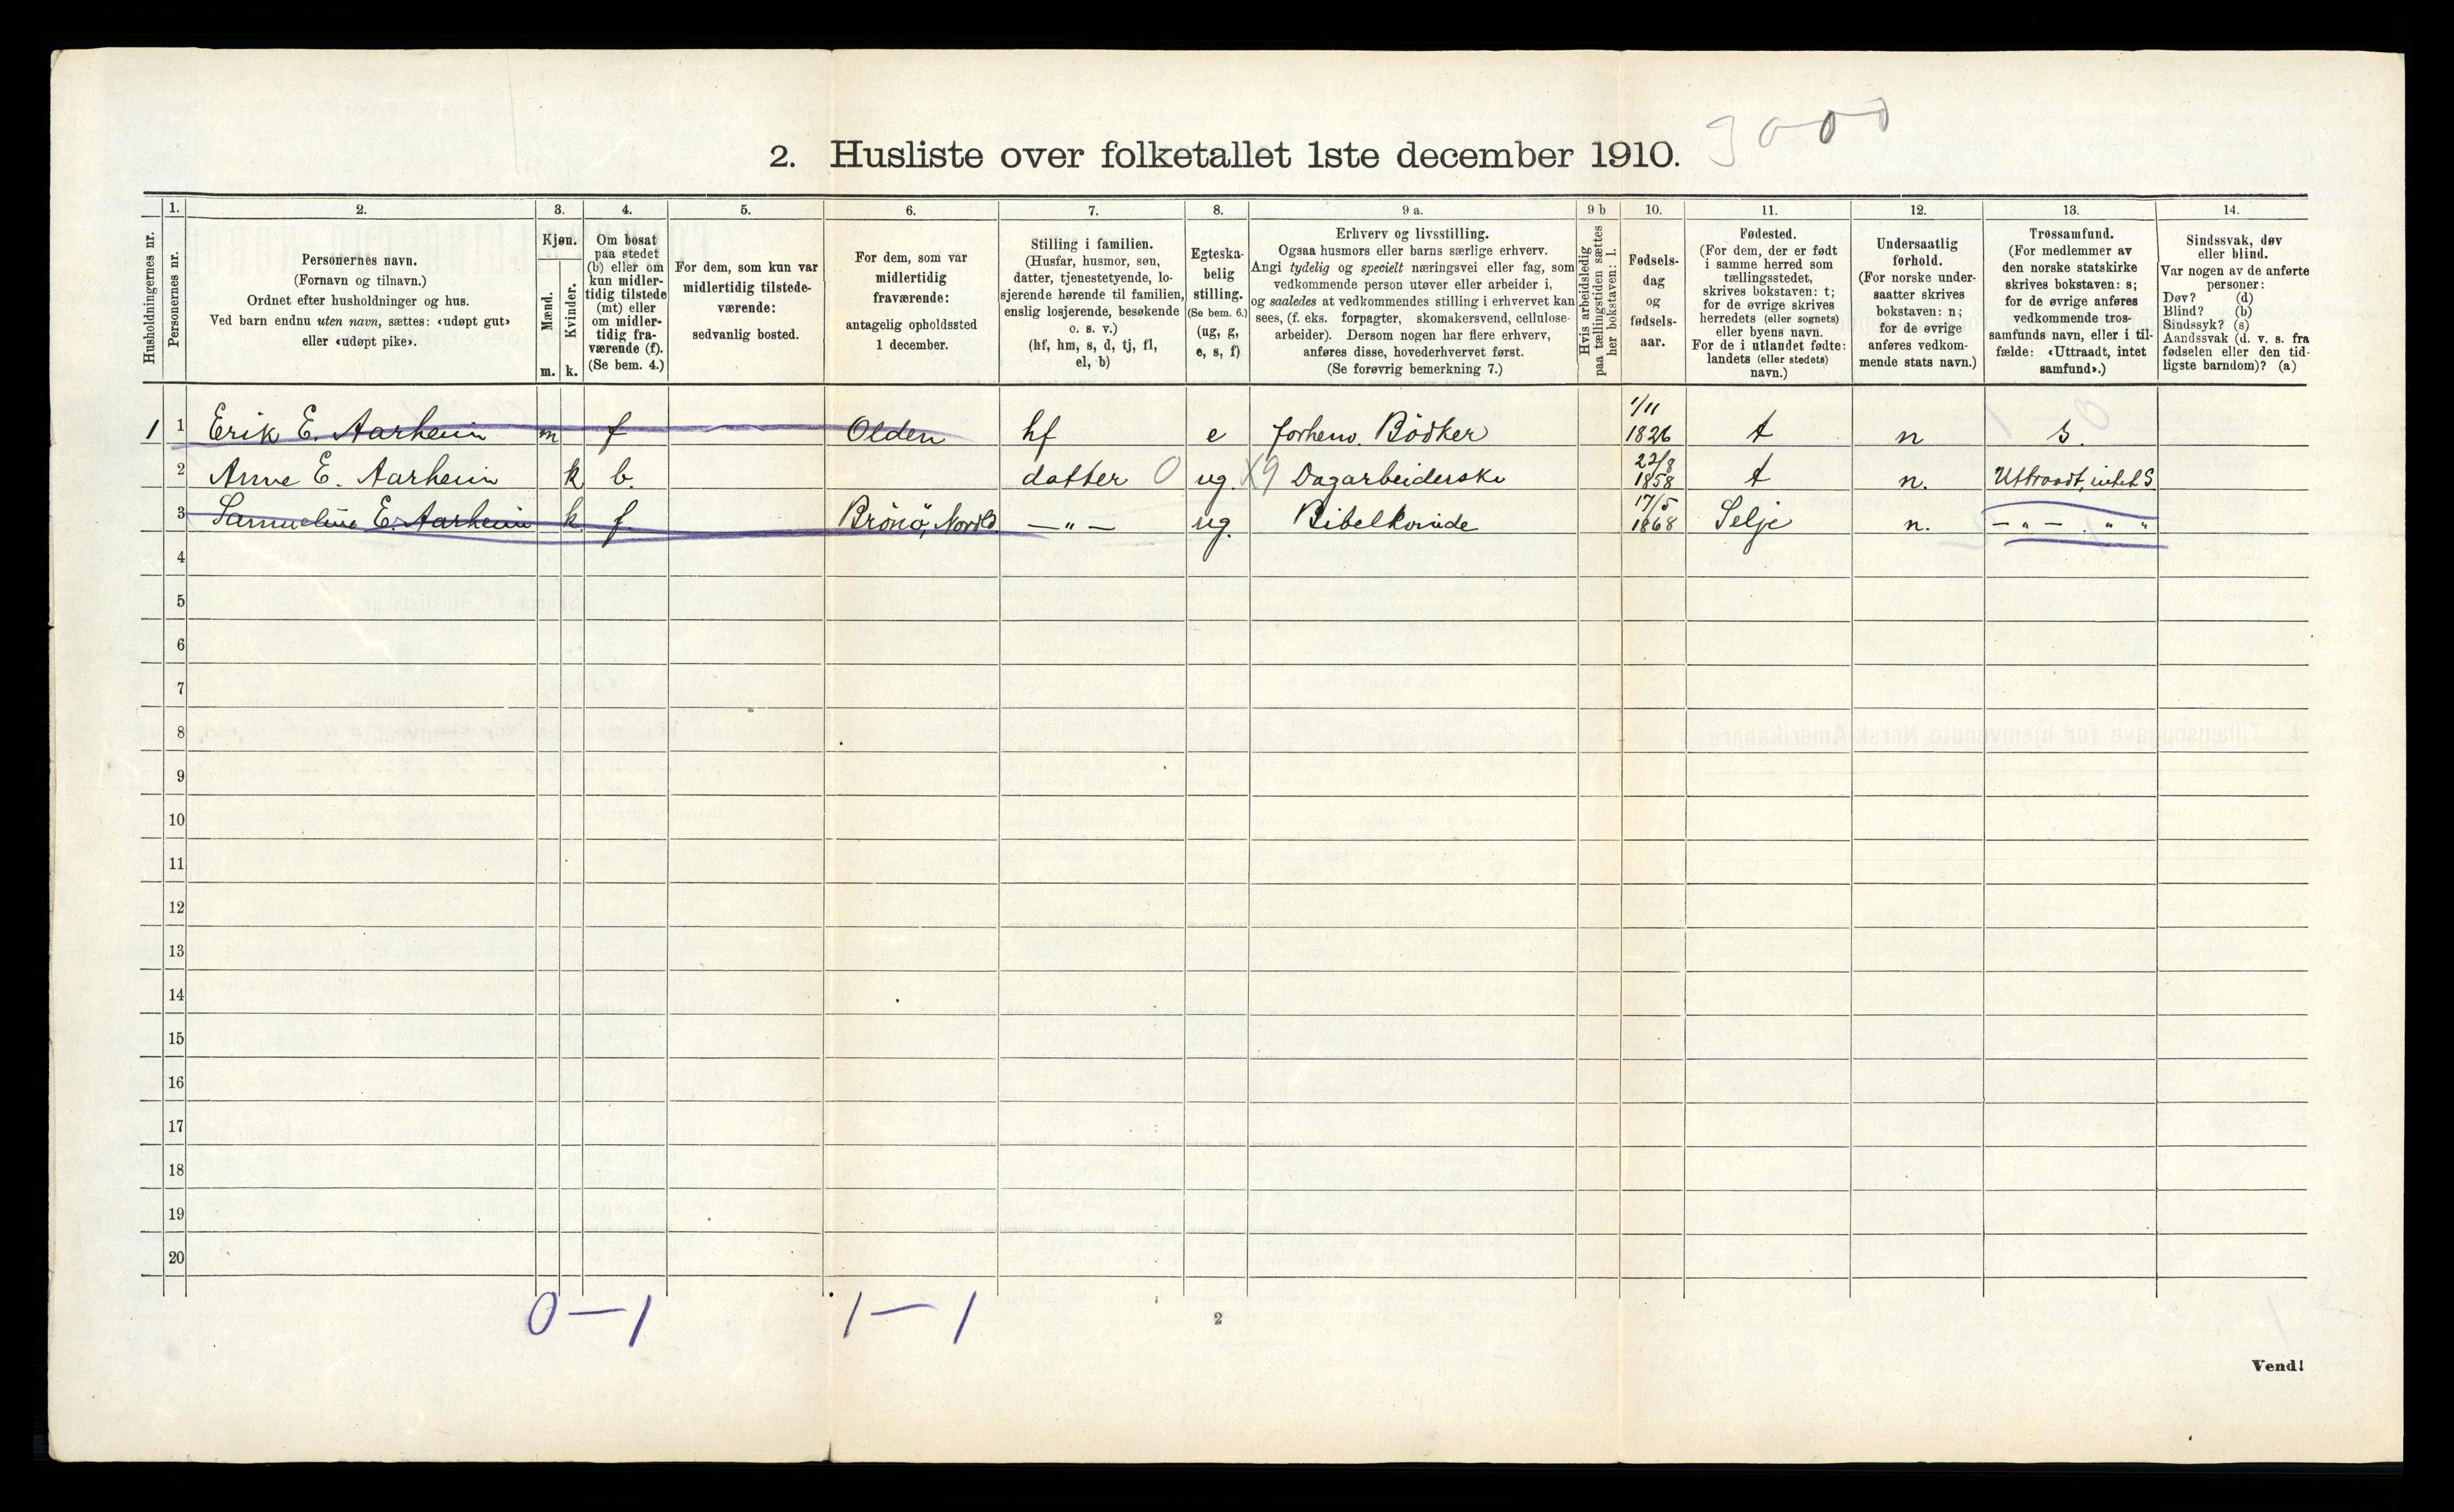 3000
2. Husliste over folketallet 1ste december 1910.
Husholdningernes nr.
1. Personernes nr.
2. Personernes navn.
(Fornavn og tilnavn.)
Ordnet efter husholdninger og hus.
Ved barn endnu uten navn, sættes: «udøpt gut»
eller «udøpt pike».
3. Kjøn.
Mænd. m.
Kvinder. k.
4. Om bosat
paa stedet
(b) eller om
kun midler-
tidig tilstede
(mt) eller
om midler-
tidig fra-
værende (f).
(Se bem. 4.)
5. For dem, som kun var
midlertidig tilstede-
værende:
sedvanlig bosted.
6. For dem, som var
midlertidig
fraværende:
antagelig opholdssted
1 december.
7. Stilling i familien.
(Husfar, husmor, søn,
datter, tjenestetyende, lo-
sjerende hørende til familien,
enslig losjerende, besøkende
o. s. v.)
(hf, hm, s, d, tj, fl,
el, b)
8. Egteska-
belig
stilling.
(Se bem. 6.)
(ug, g,
e, s, f)
9 a. Erhverv og livsstilling.
Ogsaa husmors eller barns særlige erhverv.
Angi tydelig og specielt næringsvei eller fag, som
vedkommende person utøver eller arbeider i,
og saaledes at vedkommendes stilling i erhvervet kan
sees, (f. eks. forpagter, skomakersvend, cellulose-
arbeider). Dersom nogen har flere erhverv,
anføres disse, hovederhvervet først.
(Se forøvrig bemerkning 7.)
9 b Hvis arbeidsledig
paa tællingstiden sættes
her bokstaven: l.
10. Fødsels-
dag
og
fødsels-
aar.
11. Fødested.
(For dem, der er født
i samme herred som
tællingsstedet,
skrives bokstaven: t;
for de øvrige skrives
herredets (eller sognets)
eller byens navn.
For de i utlandet fødte:
landets (eller stedets)
navn.)
12. Undersaatlig
forhold.
(For norske under-
saatter skrives
bokstaven: n;
for de øvrige
anføres vedkom-
mende stats navn.)
13. Trossamfund.
(For medlemmer av
den norske statskirke
skrives bokstaven: s;
for de øvrige anføres
vedkommende tros-
samfunds navn, eller i til-
fælde: «Uttraadt, intet
samfund».)
14. Sindssvak, døv
eller blind.
Var nogen av de anførte
personer:
Døv? (d)
Blind? (b)
Sindssyk? (s)
Aandssvak (d. v. s. fra
fødselen eller den tid-
ligste barndom)? (a)
1 1 Erik E. Aarheim m f Olden hf e forhenv. Bödker 1/11 1826 t n s.
2 Anne E. Aarheim k b. datter 0 ug. X9 Dagarbeiderske 22/8 1858 t n. Uttraadt, intet S.
3 Samueline E. Aarheim k f. Brönö, Nordld. —"— ug. Bibelkvinde 17/5 1868 Selje n. —"— . " "
4
5
6
7
8
9
10
11
12
13
14
15
16
17
18
19
20
0—1 1—1
2
Vend!